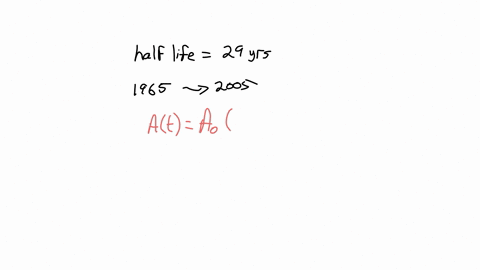 half life = 29 yrs
1965 ⤳ 2005
A(t) = A₀ (